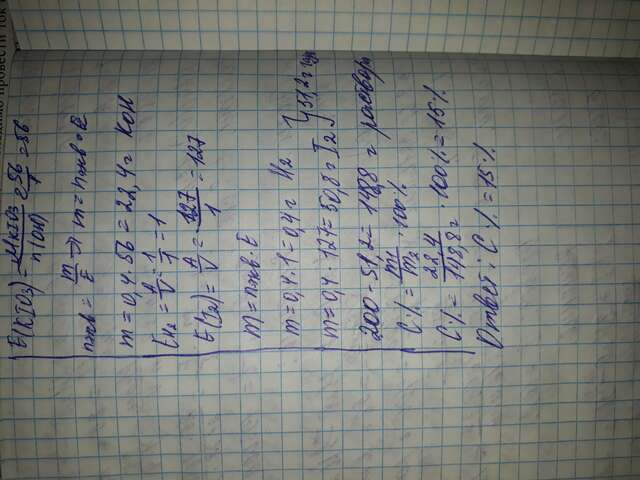 E(KIO3) = M(KIO3)/n(OH) = 56/1 = 56
nэкв = m/E → m = nэкв·E
m = 0,4·56 = 22,4 г KOH
EH2 = A/V = 1/1 = 1
E(I2) = A/V = 127/1 = 127
m = nэкв·E
m = 0,4·1 = 0,4 г H2
m = 0,4·127 = 50,8 г I2 } 51,2 г
200 - 51,2 = 148,8 г раствор
C% = m1/m2 · 100%
C% = 22,4/148,8 · 100% = 15%
Ответ: C% = 15%